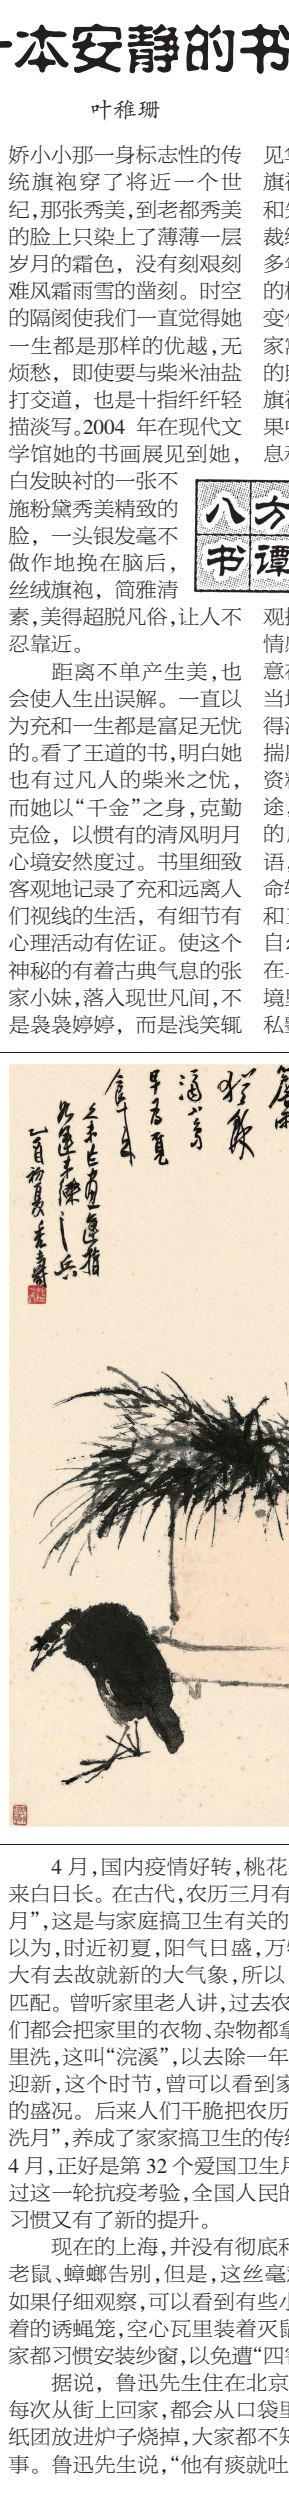 本安静的书
叶稚珊
娇小小那一身标志性的传
统旗袍穿了将近一个世
纪,那张秀美,到老都秀美
的脸上只染上了薄薄一层
岁月的霜色，没有刻艰刻
难风霜雨雪的凿刻。时空
的隔阂使我们一直觉得她
一生都是那样的优越,无
烦愁，即使要与柴米油盐
打交道，也是十指纤纤轻
描淡写。2004 年在现代文
学馆她的书画展见到她，
白发映衬的一张不
施粉黛秀美精致的
脸，一头银发毫不
做作地挽在脑后，
丝绒旗袍，简雅清
素,美得超脱凡俗,让人不
忍靠近。
距离不单产生美,也
会使人生出误解。一直以
为充和一生都是富足无忧
的。看了王道的书,明白她
也有过凡人的柴米之忧，
而她以“千金”之身,克勤
克俭，以惯有的清风明月
心境安然度过。书里细致
客观地记录了充和远离人
们视线的生活，有细节有
心理活动有佐证。使这个
神秘的有着古典气息的张
家小妹,落入现世凡间,不
是袅袅婷婷，而是浅笑辄
旗
和
裁
多
的
变
家
的
旗
果
息
八方
书谭
观
情
意
当
得
揣
资
途,
的
语,
命
和
自
在
境
私
4 月,国内疫情好转,桃花
来白日长。在古代,农历三月有
月”,这是与家庭搞卫生有关的
以为,时近初夏,阳气日盛,万
大有去故就新的大气象,所以
匹配。曾听家里老人讲,过去农
们都会把家里的衣物、杂物都
里洗,这叫“浣溪”,以去除一年
迎新,这个时节,曾可以看到家
的盛况。后来人们干脆把农历
洗月”,养成了家家搞卫生的传
4 月,正好是第 32 个爱国卫生
过这一轮抗疫考验,全国人民的
习惯又有了新的提升。
现在的上海,并没有彻底和
老鼠、蟑螂告别,但是,这丝毫
如果仔细观察,可以看到有些小
着的诱蝇笼,空心瓦里装着灭鼠
家都习惯安装纱窗,以免遭“四
据说，鲁迅先生住在北京
每次从街上回家,都会从口袋里
纸团放进炉子烧掉,大家都不知
事。鲁迅先生说,“他有痰就吐